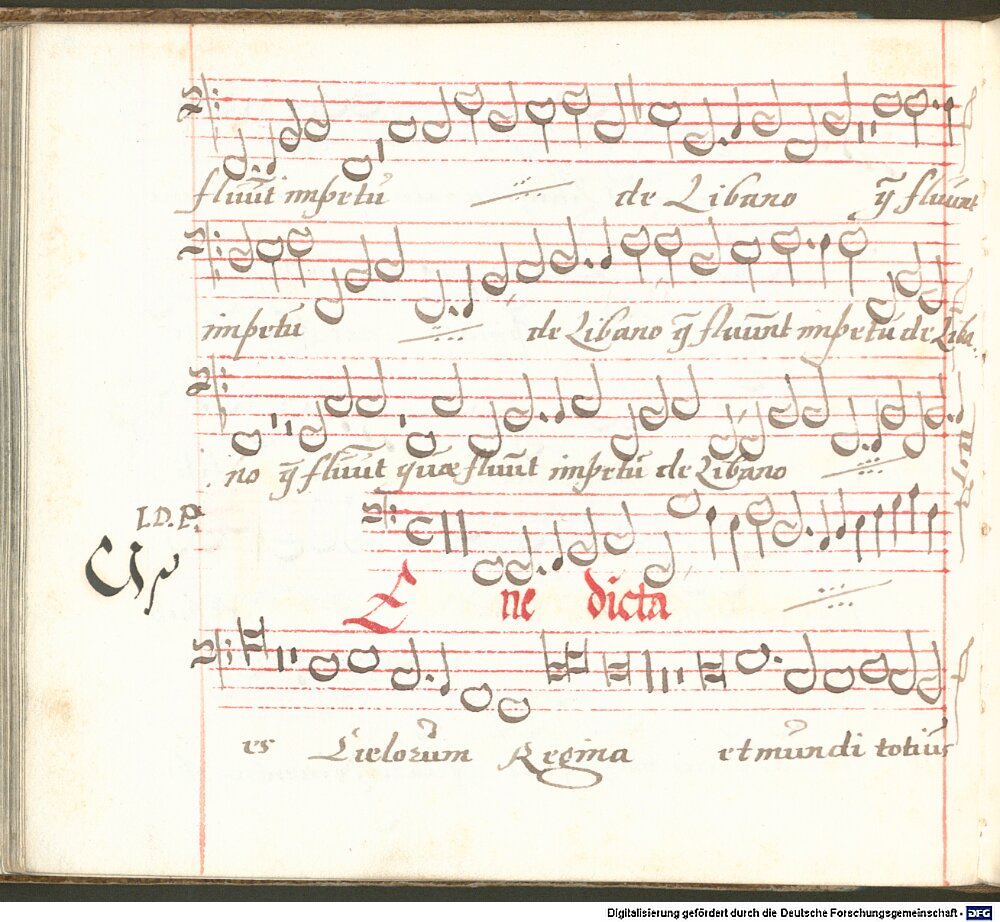 fluũt impetũ de Libano q̃ fluunt
impetũ de Libano q̃ fluũnt impetũ de Liba
no q̃ fluũt quæ fluũt impetũ de Libano
I. D. P.
Be ne dicta
es Cielorũm Regina et mũndi totiũs
Digitalisierung gefördert durch die Deutsche Forschungsgemeinschaft - DFG